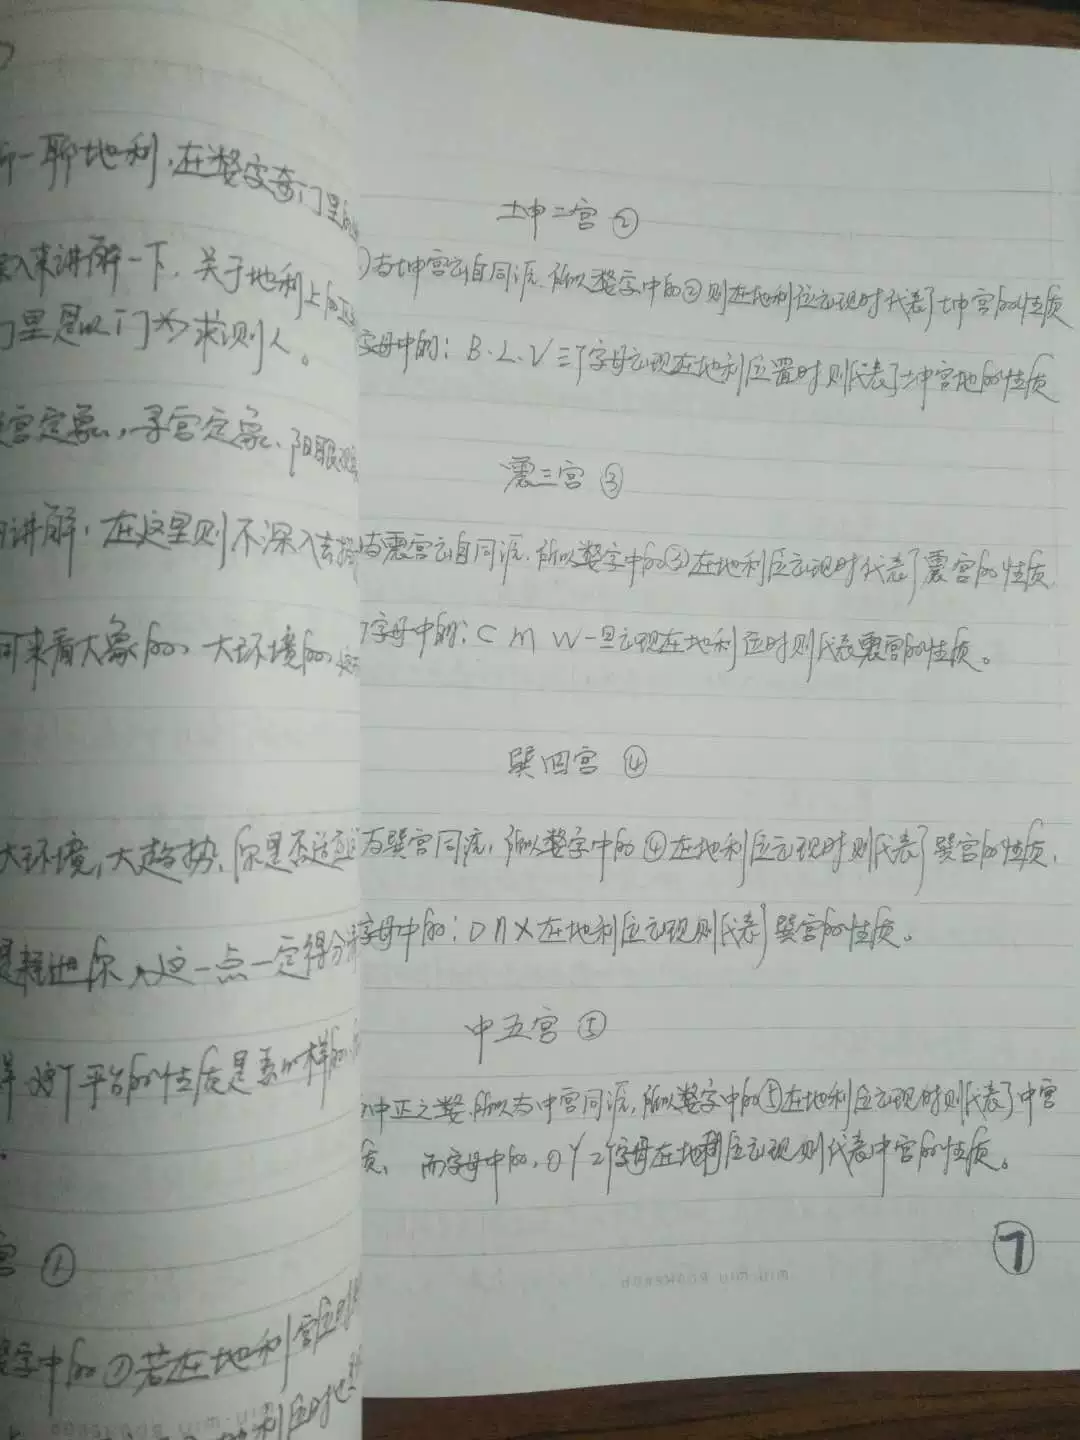 聊一聊地利,在数字奇门里
来讲解一下.关于地利上的
门里是以门为求测人。
宫定象,寻宫定象、阳
讲解,在这里则不深入去
来看大象的、大环境的、
大环境,大趋势,你是否适应
你,这一点一定得分
平台的性质是怎么样的
宫 ①
数字中的①若在地利宫位
坤二宫 ②
与坤宫出自同源.所以数字中的②则在地利位出现时代表了坤宫的性质
字母中的:B.L.V三个字母出现在地利位置时则代表了坤宫地的性质
震三宫 ③
与震宫出自同源.所以数字中的③在地利位出现时代表了震宫的性质
字母中的:C M W一旦出现在地利位时则代表震宫的性质。
巽四宫 ④
与巽宫同源,所以数字中的④在地利位出现时则代表了巽宫的性质,
字母中的:D N X在地利位出现则代表了巽宫的性质。
中五宫 ⑤
中正之数,所以与中宫同源,所以数字中的⑤在地利位出现时则代表了中宫
质、而字母中的,O Y 2个字母在地利位出现则代表中宫的性质。
7
miu·miu BOOKSHOP